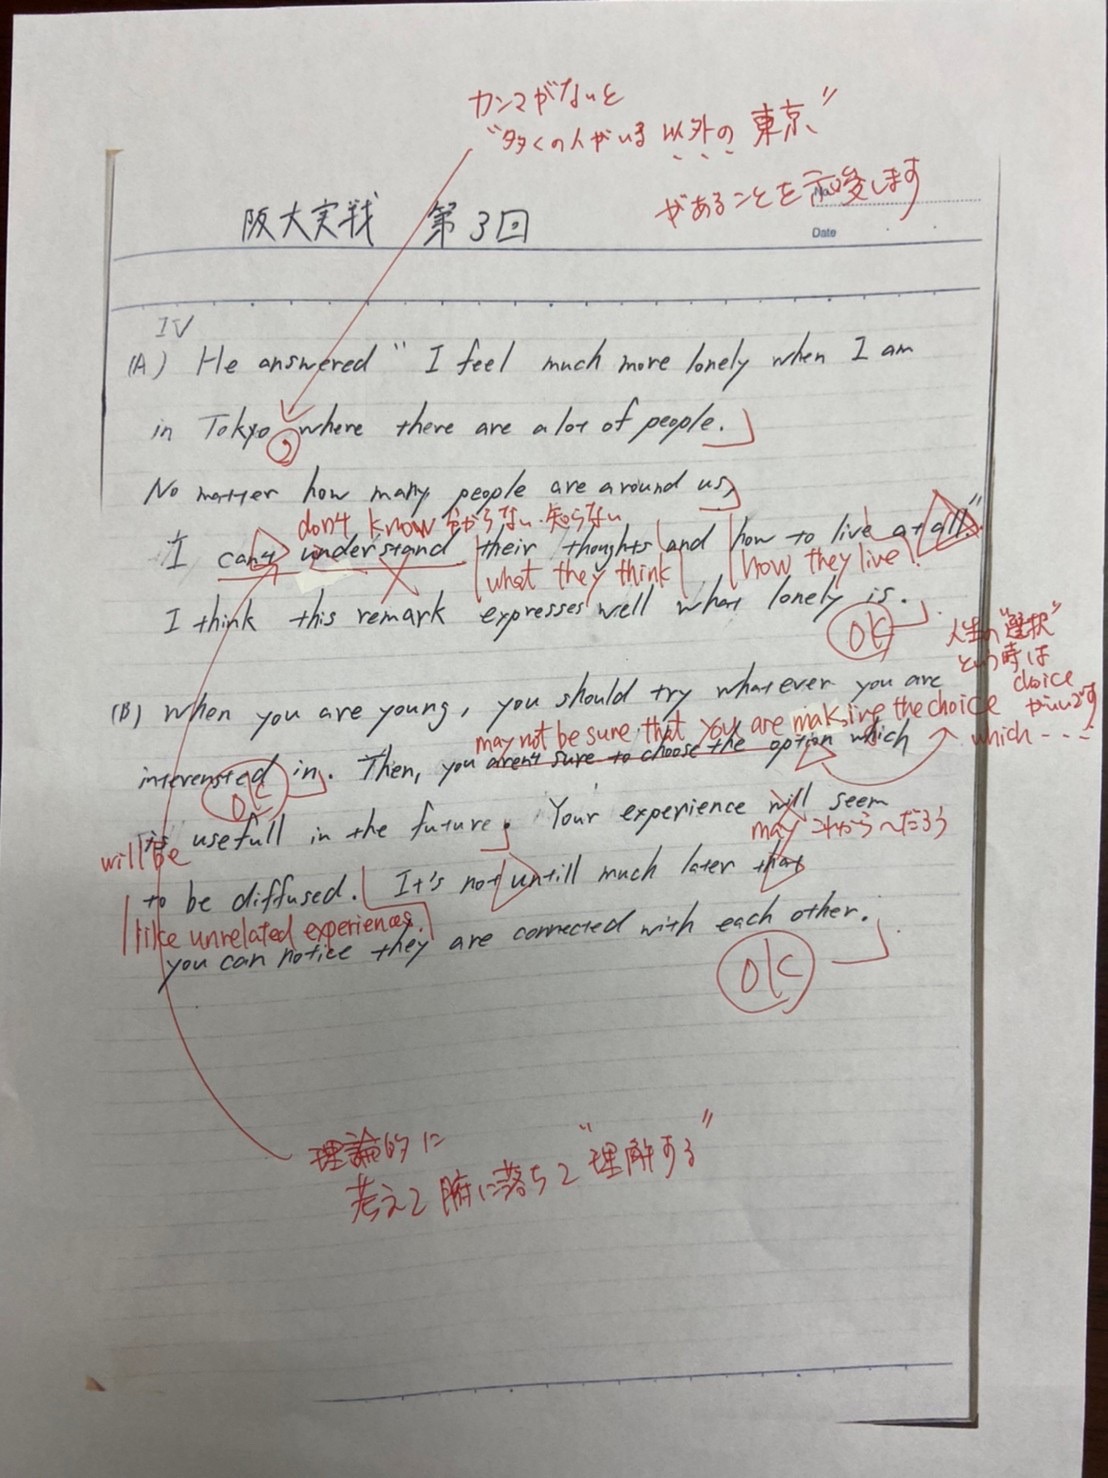 カンマがないと
"多くの人がいる 以外の 東京"
があることを示唆します
阪大実戦 第3回
Date
IV
(A) He answered " I feel much more lonely when I am
in Tokyo, where there are a lot of people.
No matter how many people are around us,
don't know 分からない・知らない
I can't understand their thoughts and how to live at all"
what they think how they live
I think this remark expresses well what lonely is.
OK
人生の"選択"
という時は
choice
がいいです
(B) When you are young, you should try whatever you are
may not be sure that you are making the choice which - - -
interensted in. Then, you aren't sure to choose the option which
OK
is usefull in the future. Your experience will seem
will be
may これから〜だろう
to be diffused. It's not untill much later that
like unrelated experiences.
you can notice they are connected with each other.
OK
理論的に
考えて腑に落ちて"理解する"